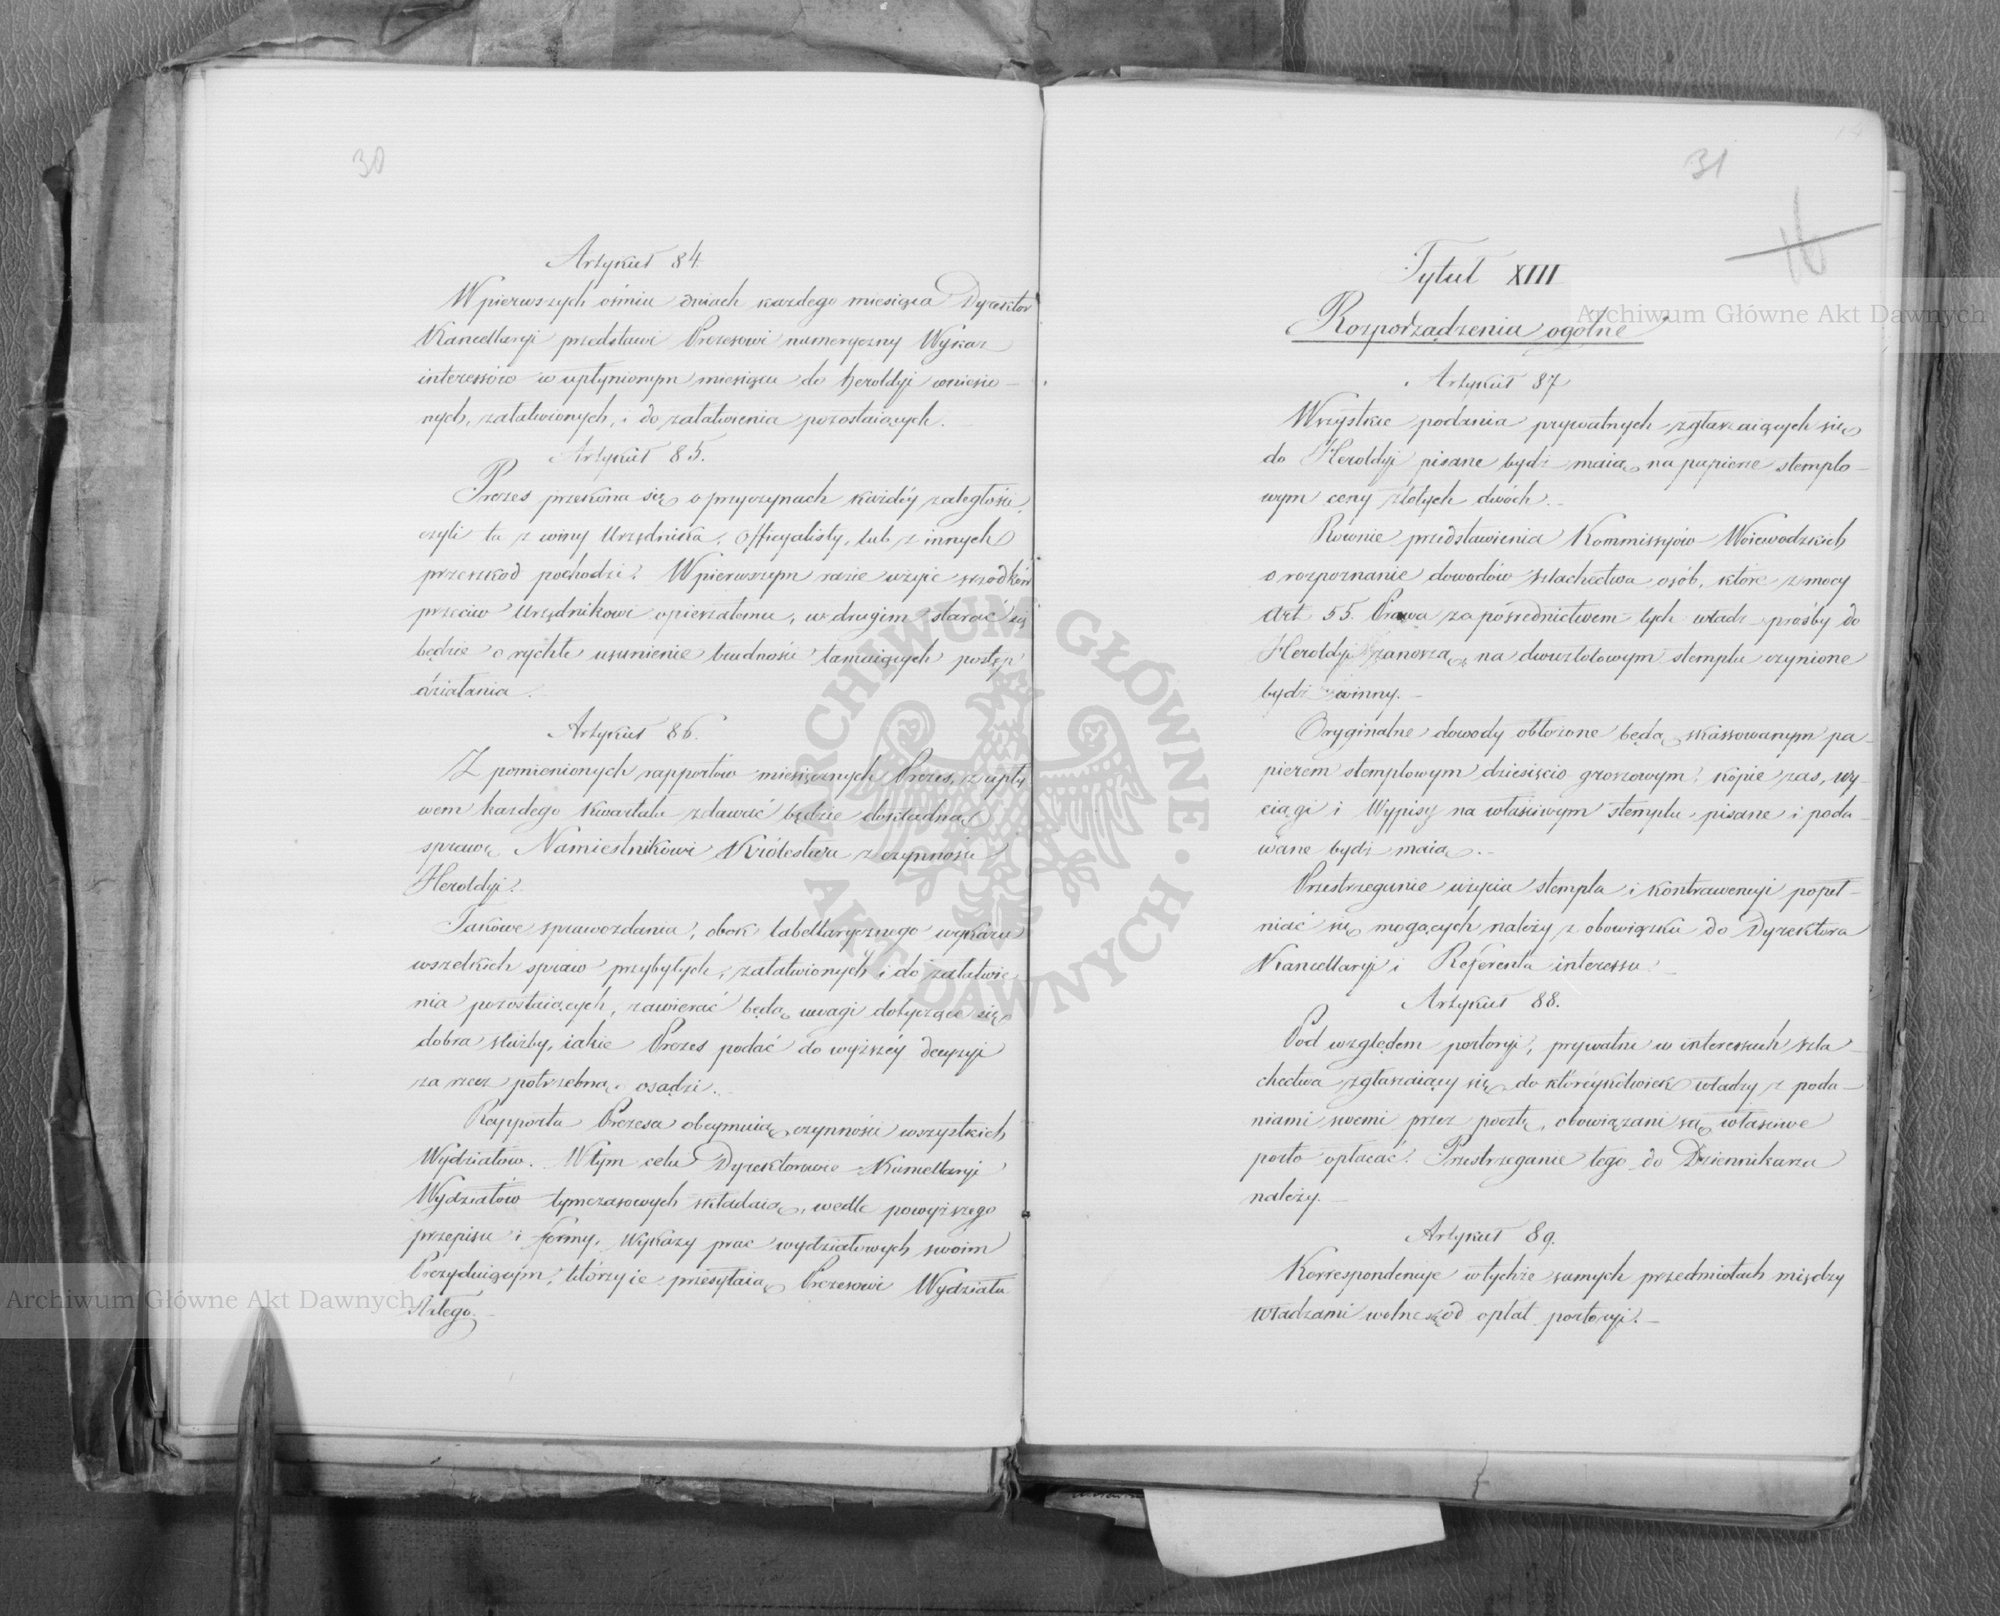 30
Artykuł 84.
W pierwszych ośmiu dniach każdego miesiąca Dyrektor
Kancellaryi przedstawi Prezesowi numeryczny Wykaz
interessów w upłynionym miesiącu do heroldyi wniesio-
nych, załatwionych, i do załatwienia pozostaiących.
Artykuł 85.
Prezes przekona się o przyczynach każdéy zaległości,
czyli ta z winy Urzędnika, Officyalisty, lub z innych
przeszkod pochodzi? W pierwszym razie użyie srzodków
przeciw Urzędnikowi opieszałemu, w drugim starać się
będzie o rychłe usunienie trudności tamuiących postęp
działania.
Artykuł 86.
Z pomienionych rapportów miesięcznych Prezes, z upły-
wem każdego kwartału zdawać będzie dokładną
sprawę Namiestnikowi Królestwa z czynności
Heroldyi.
Takowe sprawozdania, obok tabellarycznego wykazu
wszelkich spraw przybyłych, załatwionych i do załatwie-
nia pozostaiących, zawierać będą uwagi dotyczące się
dobra służby, iakie Prezes podać do wyższéy decyzyi
za rzecz potrzebną osądzi.
Rapporta Prezesa obeymuią czynności wszystkich
Wydziałów. W tym celu Dyrektorowie Kancellaryi
Wydziałów tymczasowych składaią, wedle powyższego
przepisu i formy, wykazy prac wydziałowych swoim
Prezyduiącym, którzy ie przesyłaią Prezesowi Wydziału
Stałego.
31
16
Tytuł XIII
Rozporządzenia ogólne
Artykuł 87
Wszystkie podania prywatnych zgłaszaiących się
do Heroldyi pisane bydź maią na papierze stemplo-
wym ceny złotych dwóch.
Równie przedstawienia Kommissyiów Woiewodzkich
o rozpoznanie dowodów szlachectwa osób, które z mocy
Art. 55. Prawa za pośrednictwem tych władz prośby do
Heroldyi zanoszą, na dwuzłotowym stemplu czynione
bydź winny.
Oryginalne dowody obłożone będą skassowanym pa-
pierem stemplowym dziesięcio groszowym, kopie zaś, wy-
ciągi i Wypisy na właściwym stemplu pisane i poda-
wane bydź maią.
Przestrzeganie użycia stempla i kontrawencyi popeł-
niać się mogących należy z obowiązku do Dyrektora
Kancellaryi i Referenta interessu.
Artykuł 88.
Pod względem portoryi, prywatni w interessach szla-
chectwa zgłaszaiący się do któréykolwiek władzy z poda-
niami swemi przez pocztę, obowiązani są właściwe
porto opłacać. Przestrzeganie tego do Dziennikarza
należy.
Artykuł 89.
Korrespondencye w tychże samych przedmiotach między
władzami wolne są od opłat portoryi.
Archiwum Główne Akt Dawnych
Archiwum Główne Akt Dawnych
ARCHIWUM GŁÓWNE AKT DAWNYCH